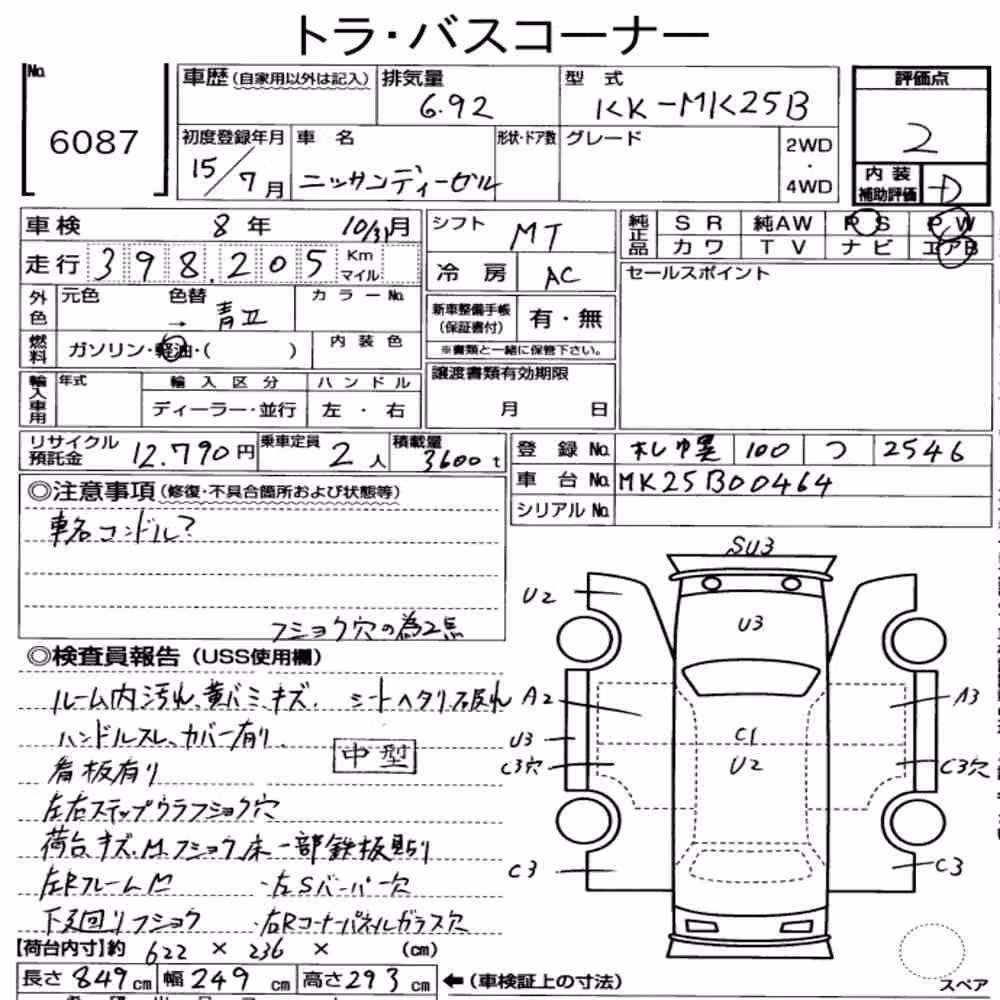 トラ・バスコーナー
No. 6087
車歴(自家用以外は記入)
排気量 6.92
型式 KK-MK25B
評価点 2
初度登録年月 15/7月
車名 ニッサンディーゼル
形状・ドア数
グレード
2WD・4WD
内装補助評価 D
車検 8年 10/31月
走行 398,205 Km マイル
シフト MT
冷房 AC
純正品 SR 純AW PS PW
カワ TV ナビ エアB
セールスポイント
外色 元色 色替 → 青
カラーNo.
燃料 ガソリン・軽油・( )
内装色
新車整備手帳(保証書付) 有・無
※書類と一緒に保管下さい。
輸入車用 年式 輸入区分 ハンドル
ディーラー・並行 左・右
譲渡書類有効期限
月 日
リサイクル預託金 12,790円
乗車定員 2人
積載量 3600t
登録No. 100 つ 2546
車台No. MK25B00464
シリアルNo.
◎注意事項(修復・不具合箇所および状態等)
車名コンドル?
フショク穴の為2点
◎検査員報告(USS使用欄)
ルーム内汚れ、黄バミキズ. シートヘタリ破れ
ハンドルスレ、カバー有り.
中型
看板有り
左右ステップウラフショク穴
荷台キズ.M.フショク,床一部鉄板貼り
左RフレームM ・左Sバンパー穴
下廻りフショク ・右Rコーナーパネルガラス穴
【荷台内寸】約 622 × 236 × (cm)
長さ 849cm 幅 249cm 高さ 293cm ←(車検証上の寸法)
SU3
U2
U3
A2
A3
U3
C1
U2
C3穴
C3穴
C3
C3
スペア